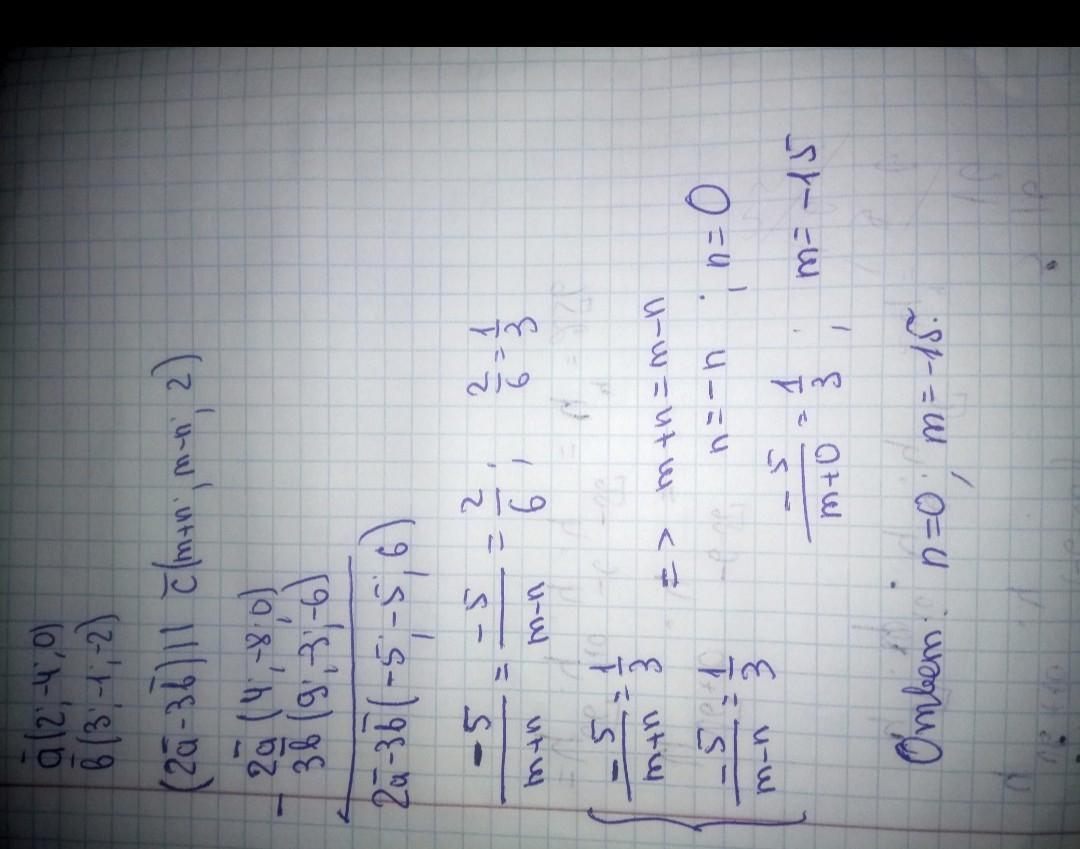 a̅(2; -4; 0)
b̅(3; -1; -2)
(2a̅-3b̅) || c̅(m+n; m-n; 2)
- 2a̅(4; -8; 0)
3b̅(9; -3; -6)
2a̅-3b̅(-5; -5; 6)
-5/(m+n) = -5/(m-n) = 2/6; 2/6 = 1/3
{ -5/(m+n) = 1/3 => m+n = m-n
-5/(m-n) = 1/3 n = -n; n = 0
-5/(m+0) = 1/3; m = -15
Ответ: n=0; m=-15.